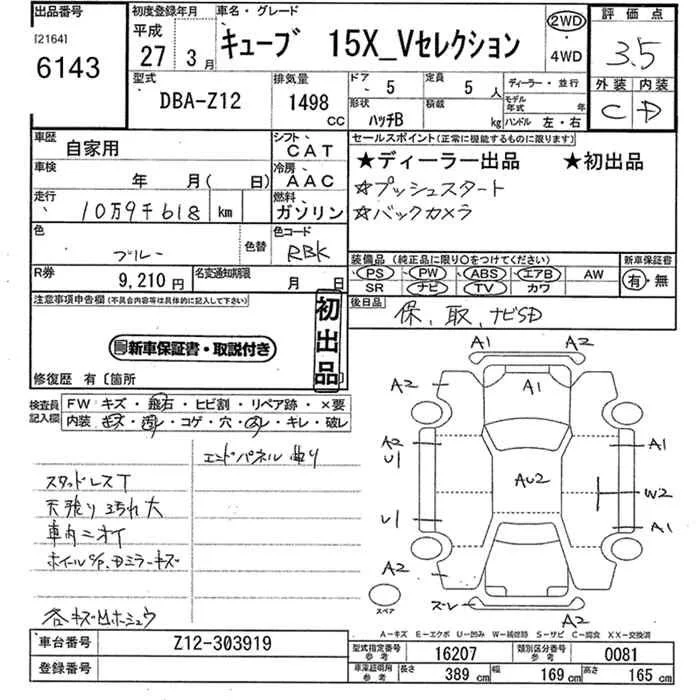 出品番号
[2164]
6143
初度登録年月
平成
27 3月
車名・グレード
キューブ 15X_Vセレクション
2WD
・
4WD
評価点
3.5
外装 内装
C D
型式
DBA-Z12
排気量
1498
CC
ドア
5
定員
5 人
形状
ハッチB
積載
kg
ディーラー・並行
モデル年式 年
ハンドル 左・右
車歴
自家用
シフト
CAT
車検
年 月( 日)
冷房
AAC
走行
10万9千618 km
燃料
ガソリン
色
ブルー
色替
色コード
RBK
R券
9,210 円
名変通知期限
月 日
セールスポイント(正常に機能するものに限ります)
★ディーラー出品 ★初出品
☆プッシュスタート
☆バックカメラ
装備品(純正品に限り○をつけてください)
PS PW ABS エアB AW
SR ナビ TV カワ
新車保証書
有・無
後日品
保、取、ナビSD
注意事項申告欄(不具合内容等は具体的に記入して下さい)
新車保証書・取説付き
初出品
修復歴 有〔箇所
検査員記入欄
FW キズ・飛石・ヒビ割・リペア跡・×要
内装・キズ・汚レ・コゲ・穴・凹レ・キレ・破レ
エンドパネル曲り
スタッドレスT
天張り汚れ大
車内ニオイ
ホイールC/P、Dミラーキズ
各キズ凹ホシュウ
A1 A2
A2 A1
A2 A1
U1
AU2 W2
U1 A1
A2
ズレ A2
スペア
A-キズ E-エクボ U-凹み W-補修跡 S-サビ C-腐食 XX-交換済
車台番号
Z12-303919
登録番号
型式指定番号
参考
16207
類別区分番号
参考
0081
車庫証明用
参考
長さ
389 cm
幅
169 cm
高さ
165 cm